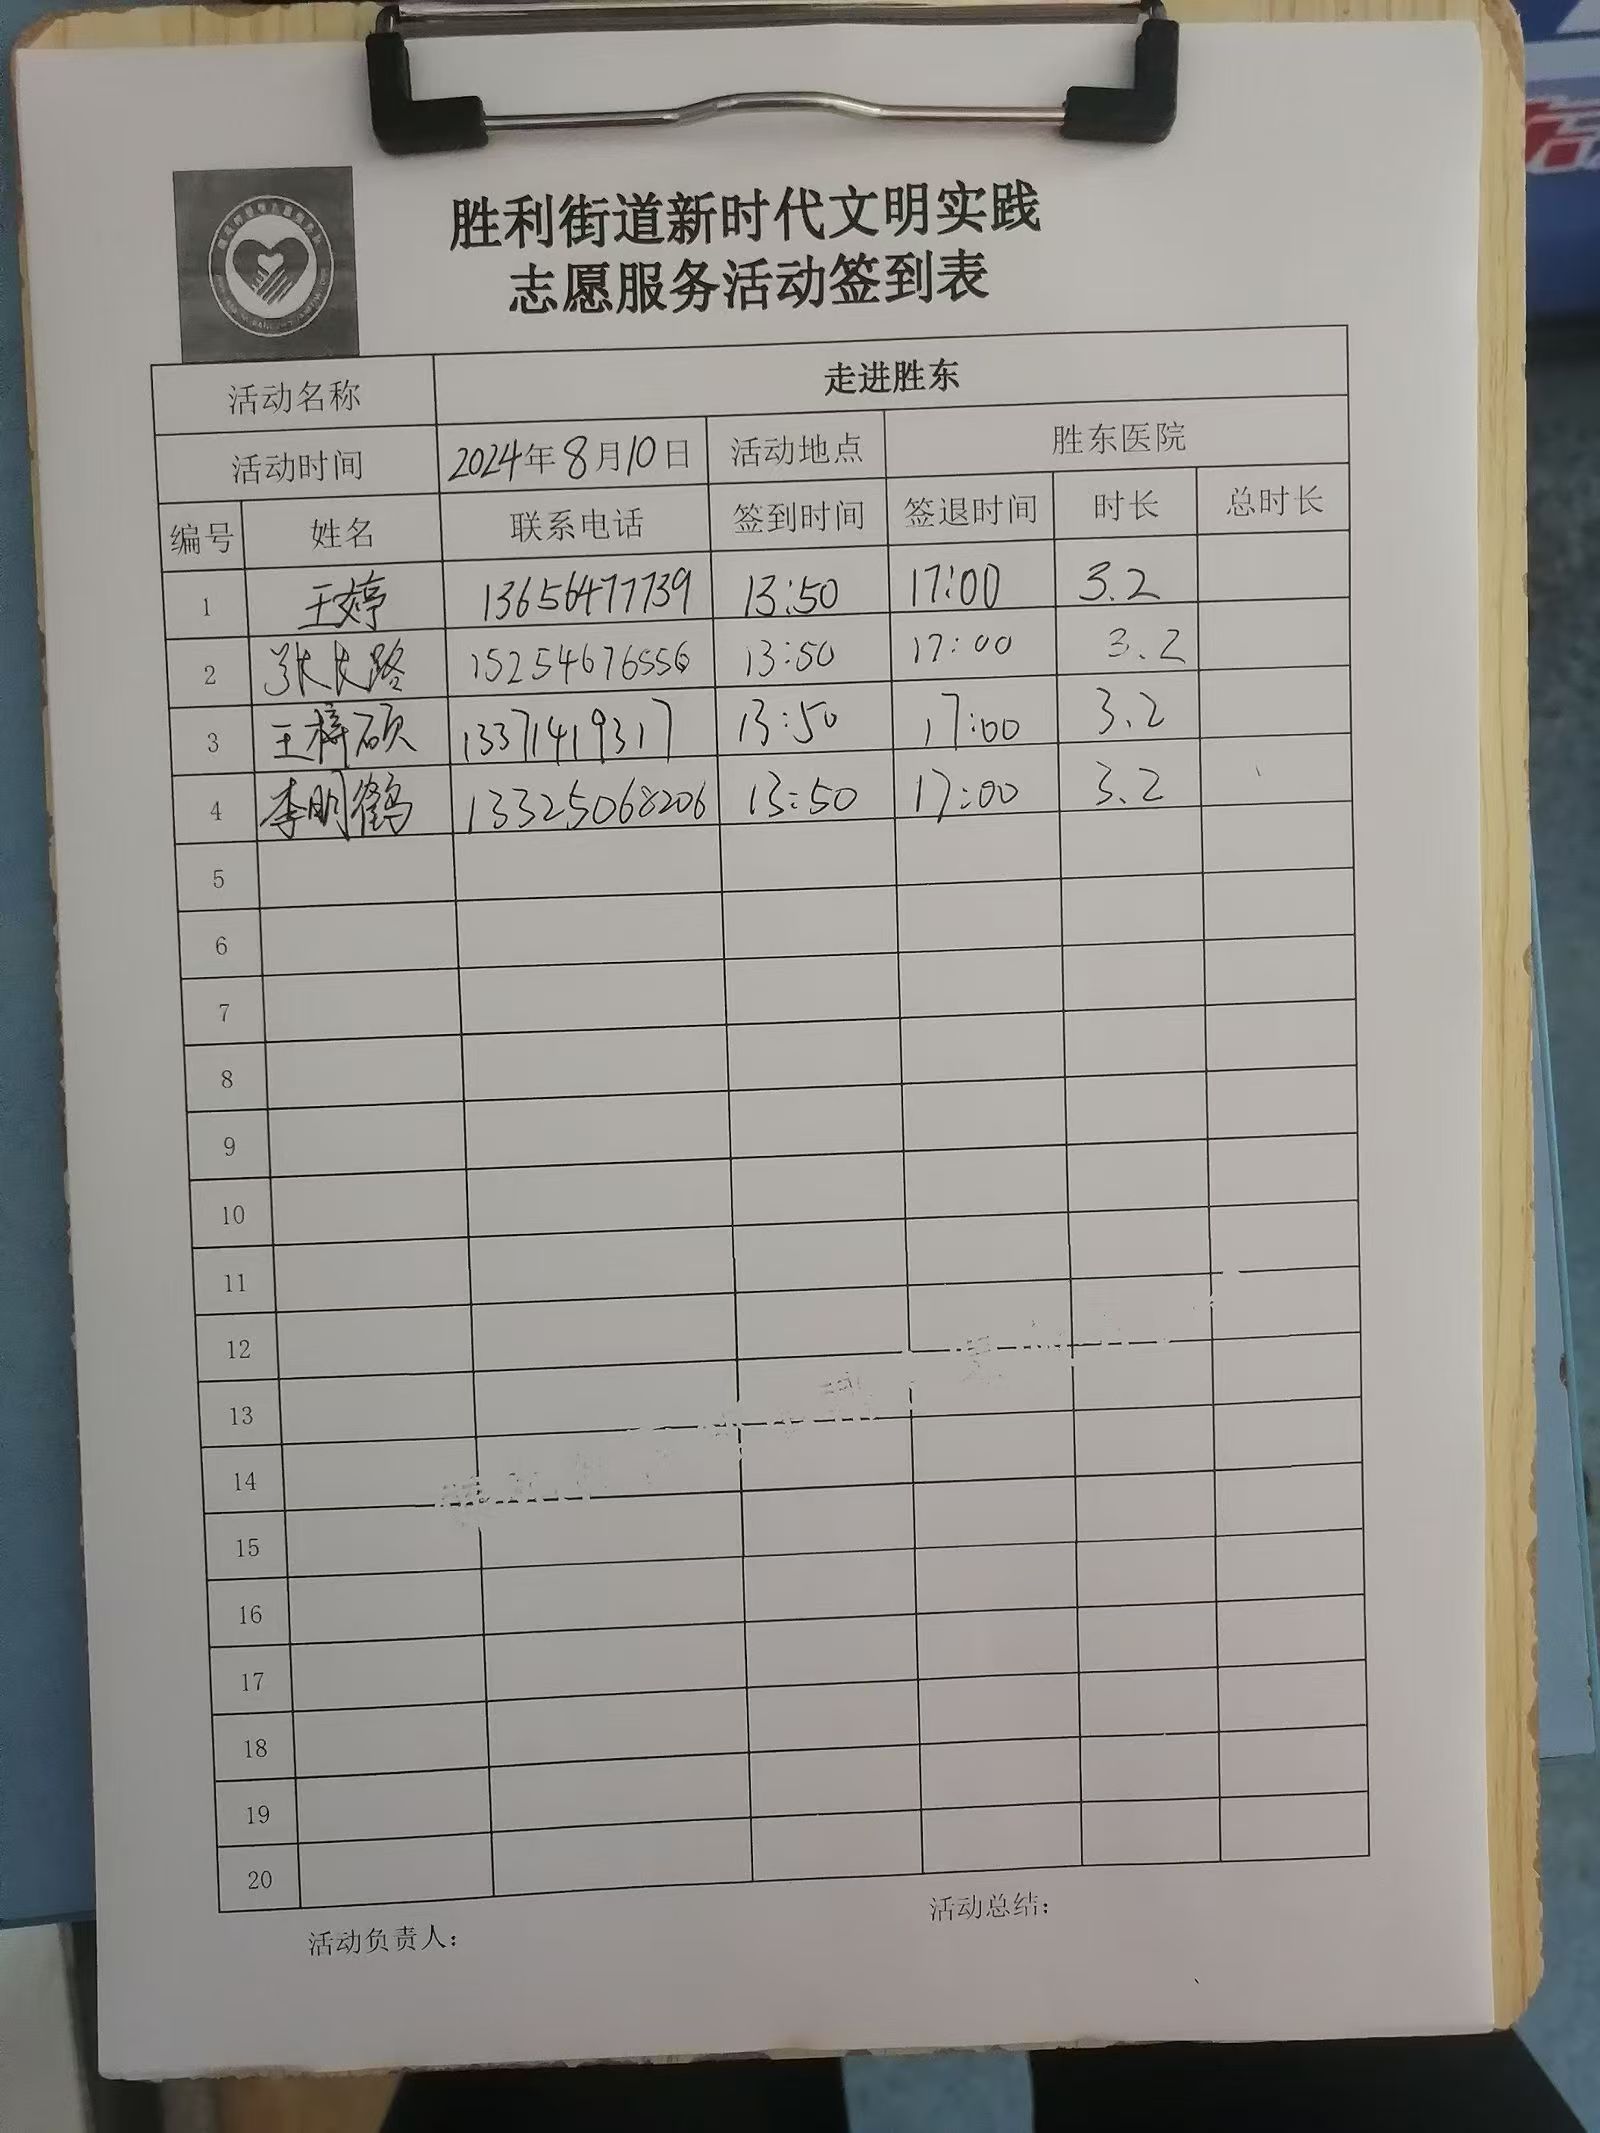 胜利街道新时代文明实践
志愿服务活动签到表
活动名称 走进胜东
活动时间 2024年8月10日 活动地点 胜东医院
编号 姓名 联系电话 签到时间 签退时间 时长 总时长
1 王婷 13656477739 13:50 17:00 3.2
2 张长路 15254676556 13:50 17:00 3.2
3 王梓硕 13371419317 13:50 17:00 3.2
4 李明鹤 13325068206 13:50 17:00 3.2
5
6
7
8
9
10
11
12
13
14
15
16
17
18
19
20
活动负责人： 活动总结：